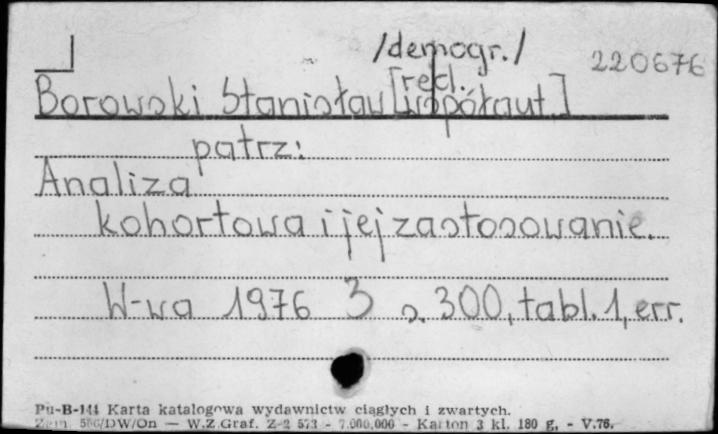 /demogr./ 220676
[red.
Borowski Stanisław [współaut.]
patrz:
Analiza
kohortowa i jej zastosowanie.
W-wa 1976 3 s. 300, tabl. 1, err.
Pu-B-141 Karta katalogowa wydawnictw ciągłych i zwartych.
Zam. 506/DW/On — W.Z.Graf. Z-2 573 - 7.000.000 - Karton 3 kl. 180 g. - V.76.